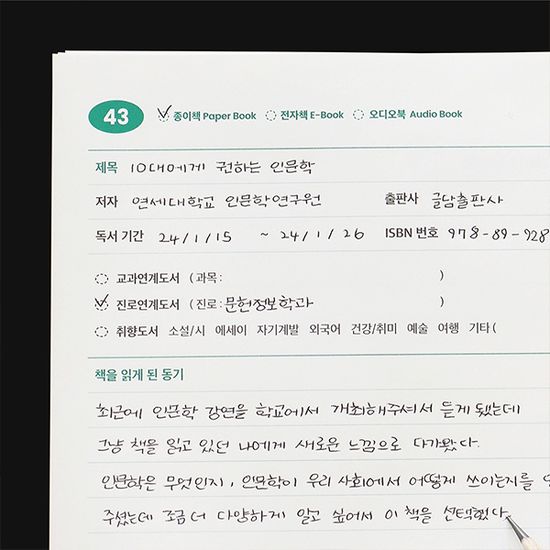 43 종이책 Paper Book 전자책 E-Book 오디오북 Audio Book
제목 10대에게 권하는 인문학
저자 연세대학교 인문학연구원 출판사 글담출판사
독서 기간 24/1/15 ~ 24/1/26 ISBN 번호 978-89-928
교과연계도서 (과목: )
진로연계도서 (진로: 문헌정보학과 )
취향도서 소설/시 에세이 자기계발 외국어 건강/취미 예술 여행 기타 (
책을 읽게 된 동기
최근에 인문학 강연을 학교에서 개최해주셔서 듣게 됐는데
그냥 책을 읽고 있던 나에게 새로운 느낌으로 다가왔다.
인문학은 무엇인지, 인문학이 우리 사회에서 어떻게 쓰이는지를
주셨는데 조금 더 다양하게 알고 싶어서 이 책을 선택했다.